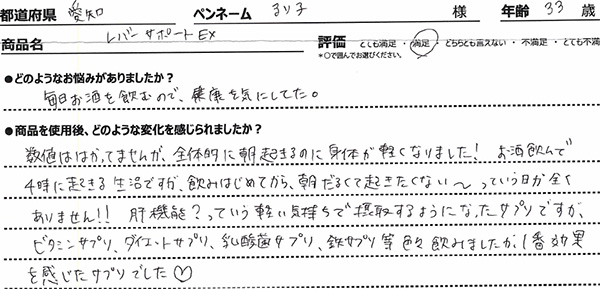 都道府県 愛知 ペンネーム るり子 様 年齢 33 歳
商品名 レバーサポートEX 評価 とても満足 ・ 満足 ・ どちらとも言えない ・ 不満足 ・ とても不満
*○で囲んでお選びください。
●どのようなお悩みがありましたか?
毎日お酒を飲むので、健康を気にしてた。
●商品を使用後、どのような変化を感じられましたか?
数値ははかってませんが、全体的に朝起きるのに身体が軽くなりました! お酒飲んで
4時に起きる生活ですが、飲みはじめてから、朝だるくて起きたくない〜っていう日が全く
ありません!! 肝機能?っていう軽い気持ちで摂取するようになったサプリですが、
ビタミンサプリ、ダイエットサプリ、乳酸菌サプリ、鉄サプリ等色々飲みましたが、1番効果
を感じたサプリでした♡